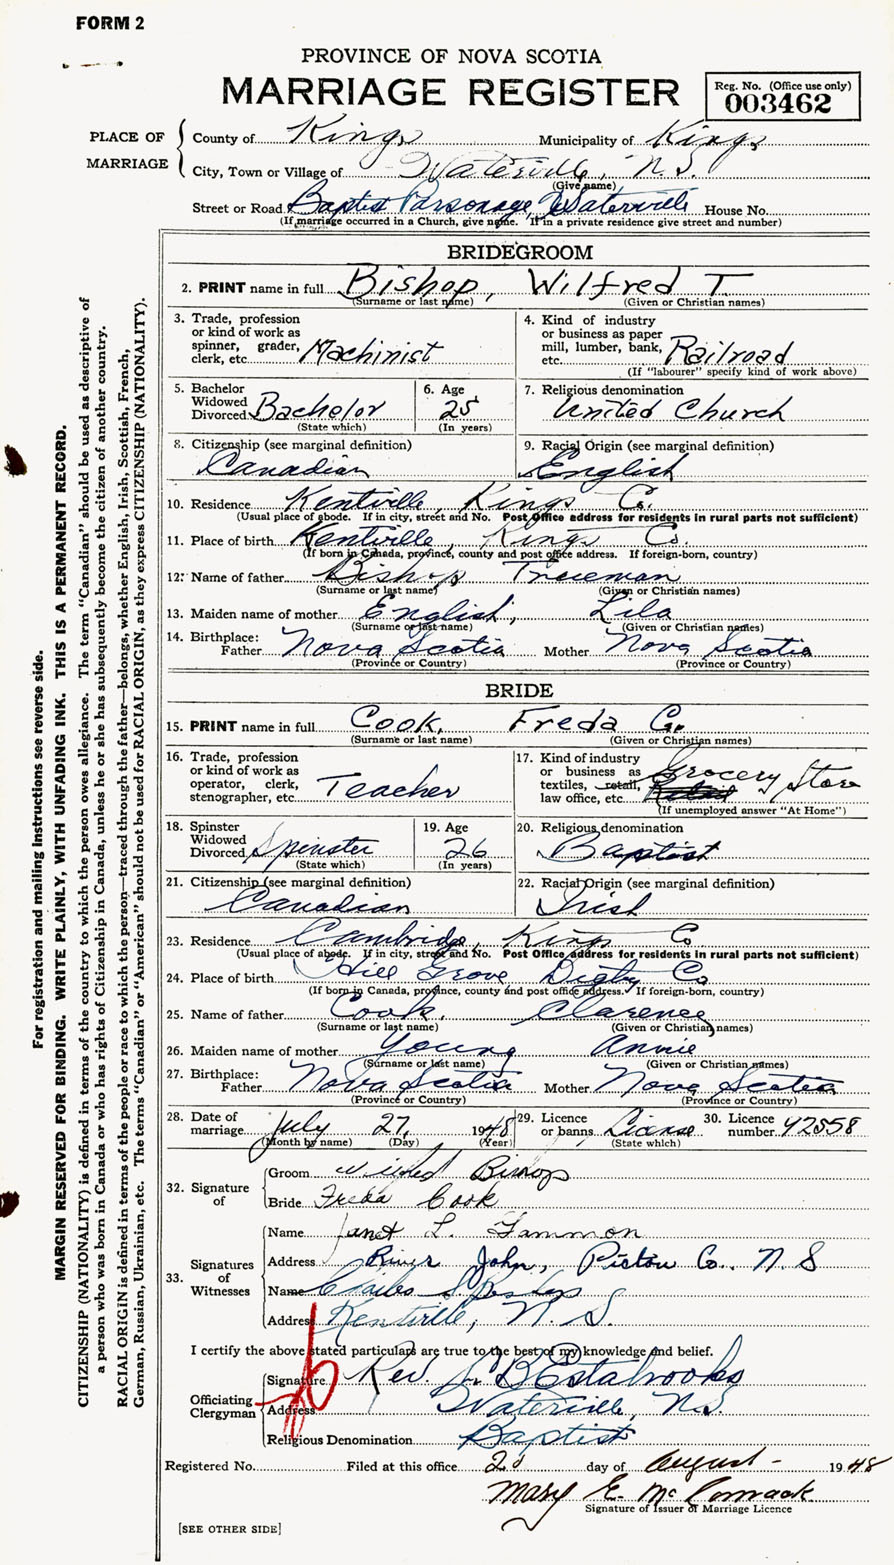 FORM 2
PROVINCE OF NOVA SCOTIA
MARRIAGE REGISTER
Reg. No. (Office use only)
003462
PLACE OF MARRIAGE
County of Kings Municipality of Kings
City, Town or Village of Waterville, N.S.
(Give name)
Street or Road Baptist Parsonage, Waterville House No.
(If marriage occurred in a Church, give name. If in a private residence give street and number)
BRIDEGROOM
2. PRINT name in full Bishop, Wilfred T.
(Surname or last name) (Given or Christian names)
3. Trade, profession or kind of work as spinner, grader, clerk, etc. Machinist
4. Kind of industry or business as paper mill, lumber, bank, etc. Railroad
(If "labourer" specify kind of work above)
5. Bachelor Widowed Divorced Bachelor
(State which)
6. Age 25
(In years)
7. Religious denomination
United Church
8. Citizenship (see marginal definition)
Canadian
9. Racial Origin (see marginal definition)
English
10. Residence Kentville, Kings Co.
(Usual place of abode. If in city, street and No. Post Office address for residents in rural parts not sufficient)
11. Place of birth Kentville, Kings Co.
(If born in Canada, province, county and post office address. If foreign-born, country)
12. Name of father Bishop Treeman
(Surname or last name) (Given or Christian names)
13. Maiden name of mother English, Lila
(Surname or last name) (Given or Christian names)
14. Birthplace:
Father Nova Scotia Mother Nova Scotia
(Province or Country) (Province or Country)
BRIDE
15. PRINT name in full Cook, Freda G.
(Surname or last name) (Given or Christian names)
16. Trade, profession or kind of work as operator, clerk, stenographer, etc. Teacher
17. Kind of industry or business as textiles, retail, law office, etc. Grocery Store
(If unemployed answer "At Home")
18. Spinster Widowed Divorced Spinster
(State which)
19. Age 26
(In years)
20. Religious denomination
Baptist
21. Citizenship (see marginal definition)
Canadian
22. Racial Origin (see marginal definition)
Irish
23. Residence Cambridge, Kings Co
(Usual place of abode. If in city, street and No. Post Office address for residents in rural parts not sufficient)
24. Place of birth Hill Grove Digby Co
(If born in Canada, province, county and post office address. If foreign-born, country)
25. Name of father Cook, Clarence
(Surname or last name) (Given or Christian names)
26. Maiden name of mother Young Annie
(Surname or last name) (Given or Christian names)
27. Birthplace:
Father Nova Scotia Mother Nova Scotia
(Province or Country) (Province or Country)
28. Date of marriage July 27, 1948
(Month by name) (Day) (Year)
29. Licence or banns License
(State which)
30. Licence number 42558
32. Signature of
Groom Wilfred Bishop
Bride Freda Cook
33. Signatures of Witnesses
Name Janet L. Gammon
Address River John, Pictou Co., N S
Name Charles Bishop
Address Kentville, N. S.
I certify the above stated particulars are true to the best of my knowledge and belief.
Officiating Clergyman
Signature Rev. Estabrooks
Address Waterville, N.S.
Religious Denomination Baptist
Registered No. Filed at this office day of August 1948
Mary E. McCormack
Signature of Issuer of Marriage Licence
[SEE OTHER SIDE]
For registration and mailing instructions see reverse side.
MARGIN RESERVED FOR BINDING. WRITE PLAINLY, WITH UNFADING INK. THIS IS A PERMANENT RECORD.
CITIZENSHIP (NATIONALITY) is defined in terms of the country to which the person owes allegiance. The term "Canadian" should be used as descriptive of
a person who was born in Canada or who has rights of Citizenship in Canada, unless he or she has subsequently become the citizen of another country.
RACIAL ORIGIN is defined in terms of the people or race to which the person—traced through the father—belongs, whether English, Irish, Scottish, French,
German, Russian, Ukrainian, etc. The terms "Canadian" or "American" should not be used for RACIAL ORIGIN, as they express CITIZENSHIP (NATIONALITY).